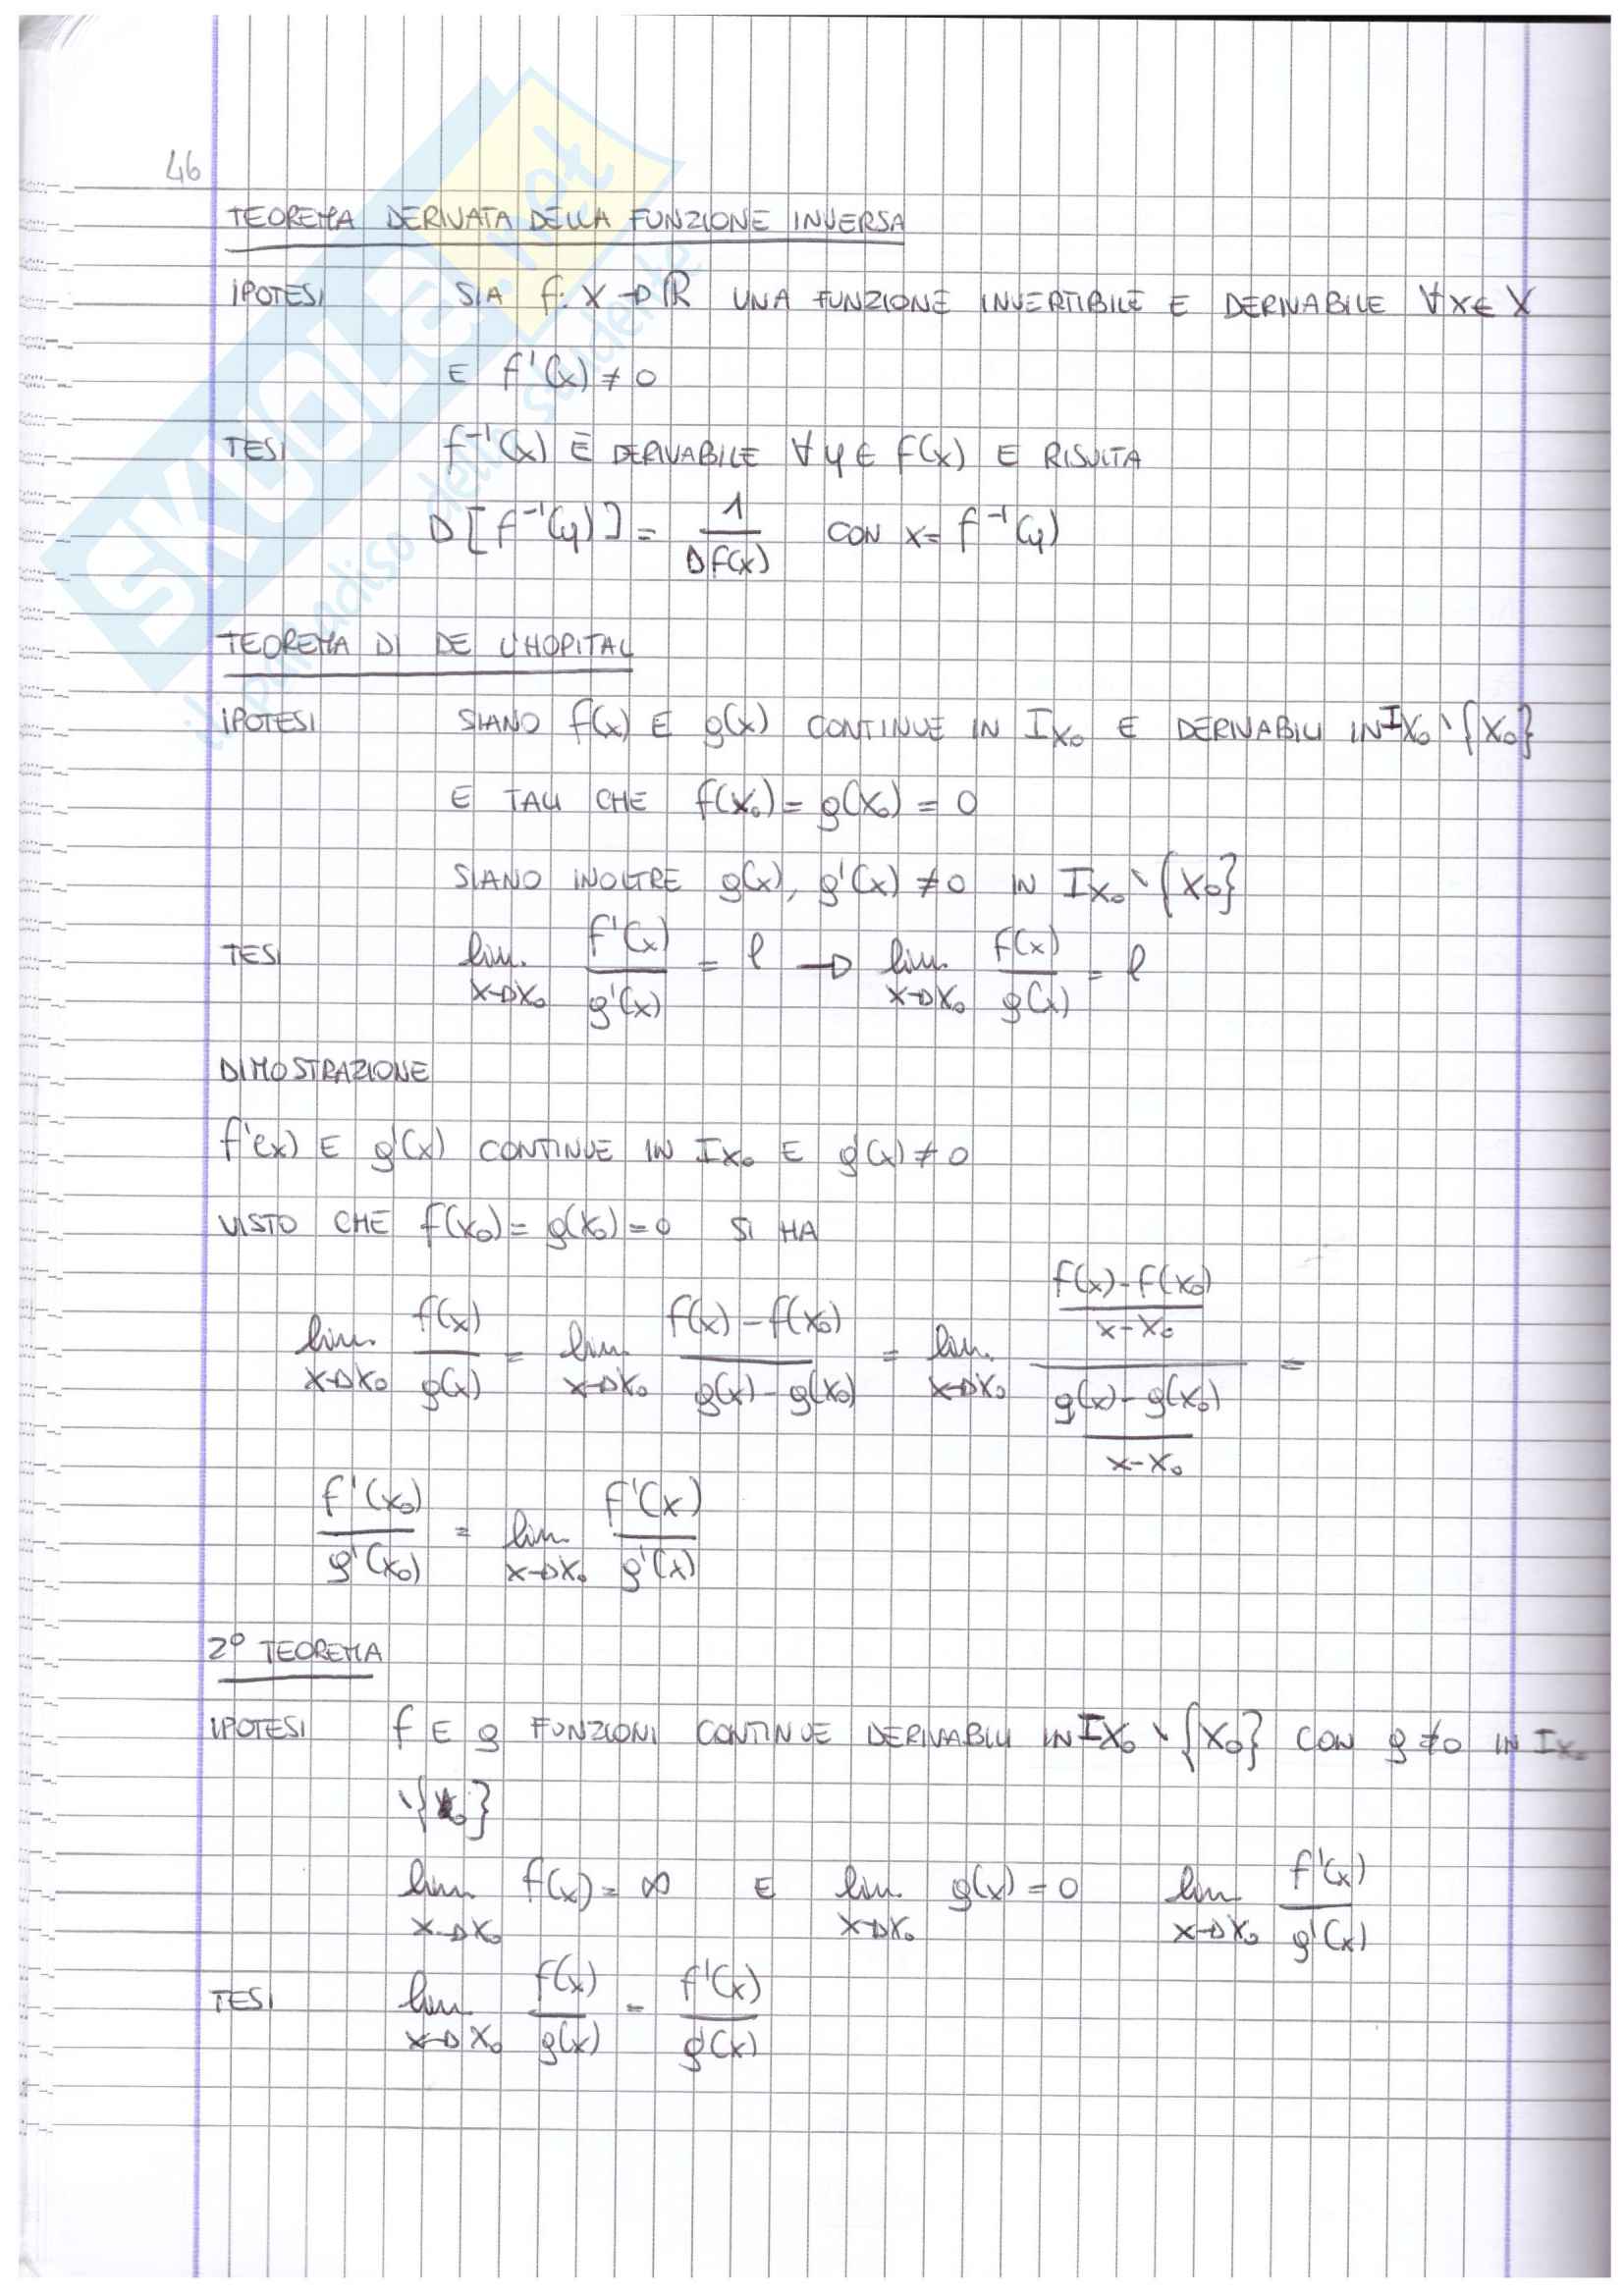 46
TEOREMA DERIVATA DELLA FUNZIONE INVERSA
IPOTESI SIA f: X → ℝ UNA FUNZIONE INVERTIBILE E DERIVABILE ∀x ∈ X
E f'(x) ≠ 0
TESI f⁻¹(x) È DERIVABILE ∀y ∈ f(x) E RISULTA
D[f⁻¹(y)] = 1 / Df(x) CON x = f⁻¹(y)
TEOREMA DI DE L'HOPITAL
IPOTESI SIANO f(x) E g(x) CONTINUE IN Ix₀ E DERIVABILI IN Ix₀ \ {x₀}
E TALI CHE f(x₀) = g(x₀) = 0
SIANO INOLTRE g(x), g'(x) ≠ 0 IN Ix₀ \ {x₀}
TESI lim x→x₀ f'(x)/g'(x) = l → lim x→x₀ f(x)/g(x) = l
DIMOSTRAZIONE
f'(x) E g'(x) CONTINUE IN Ix₀ E g'(x) ≠ 0
VISTO CHE f(x₀) = g(x₀) = 0 SI HA
lim x→x₀ f(x)/g(x) = lim x→x₀ (f(x) - f(x₀))/(g(x) - g(x₀)) = lim x→x₀ ((f(x) - f(x₀))/(x - x₀))/((g(x) - g(x₀))/(x - x₀)) =
f'(x₀)/g'(x₀) = lim x→x₀ f'(x)/g'(x)
2° TEOREMA
IPOTESI f E g FUNZIONI CONTINUE DERIVABILI IN Ix₀ \ {x₀} CON g ≠ 0 IN Ix₀
\ {x₀}
lim x→x₀ f(x) = ∞ E lim x→x₀ g(x) = 0 lim x→x₀ f'(x)/g'(x)
TESI lim x→x₀ f(x)/g(x) = f'(x)/g'(x)
SKUOLA.net
il paradiso dello studente